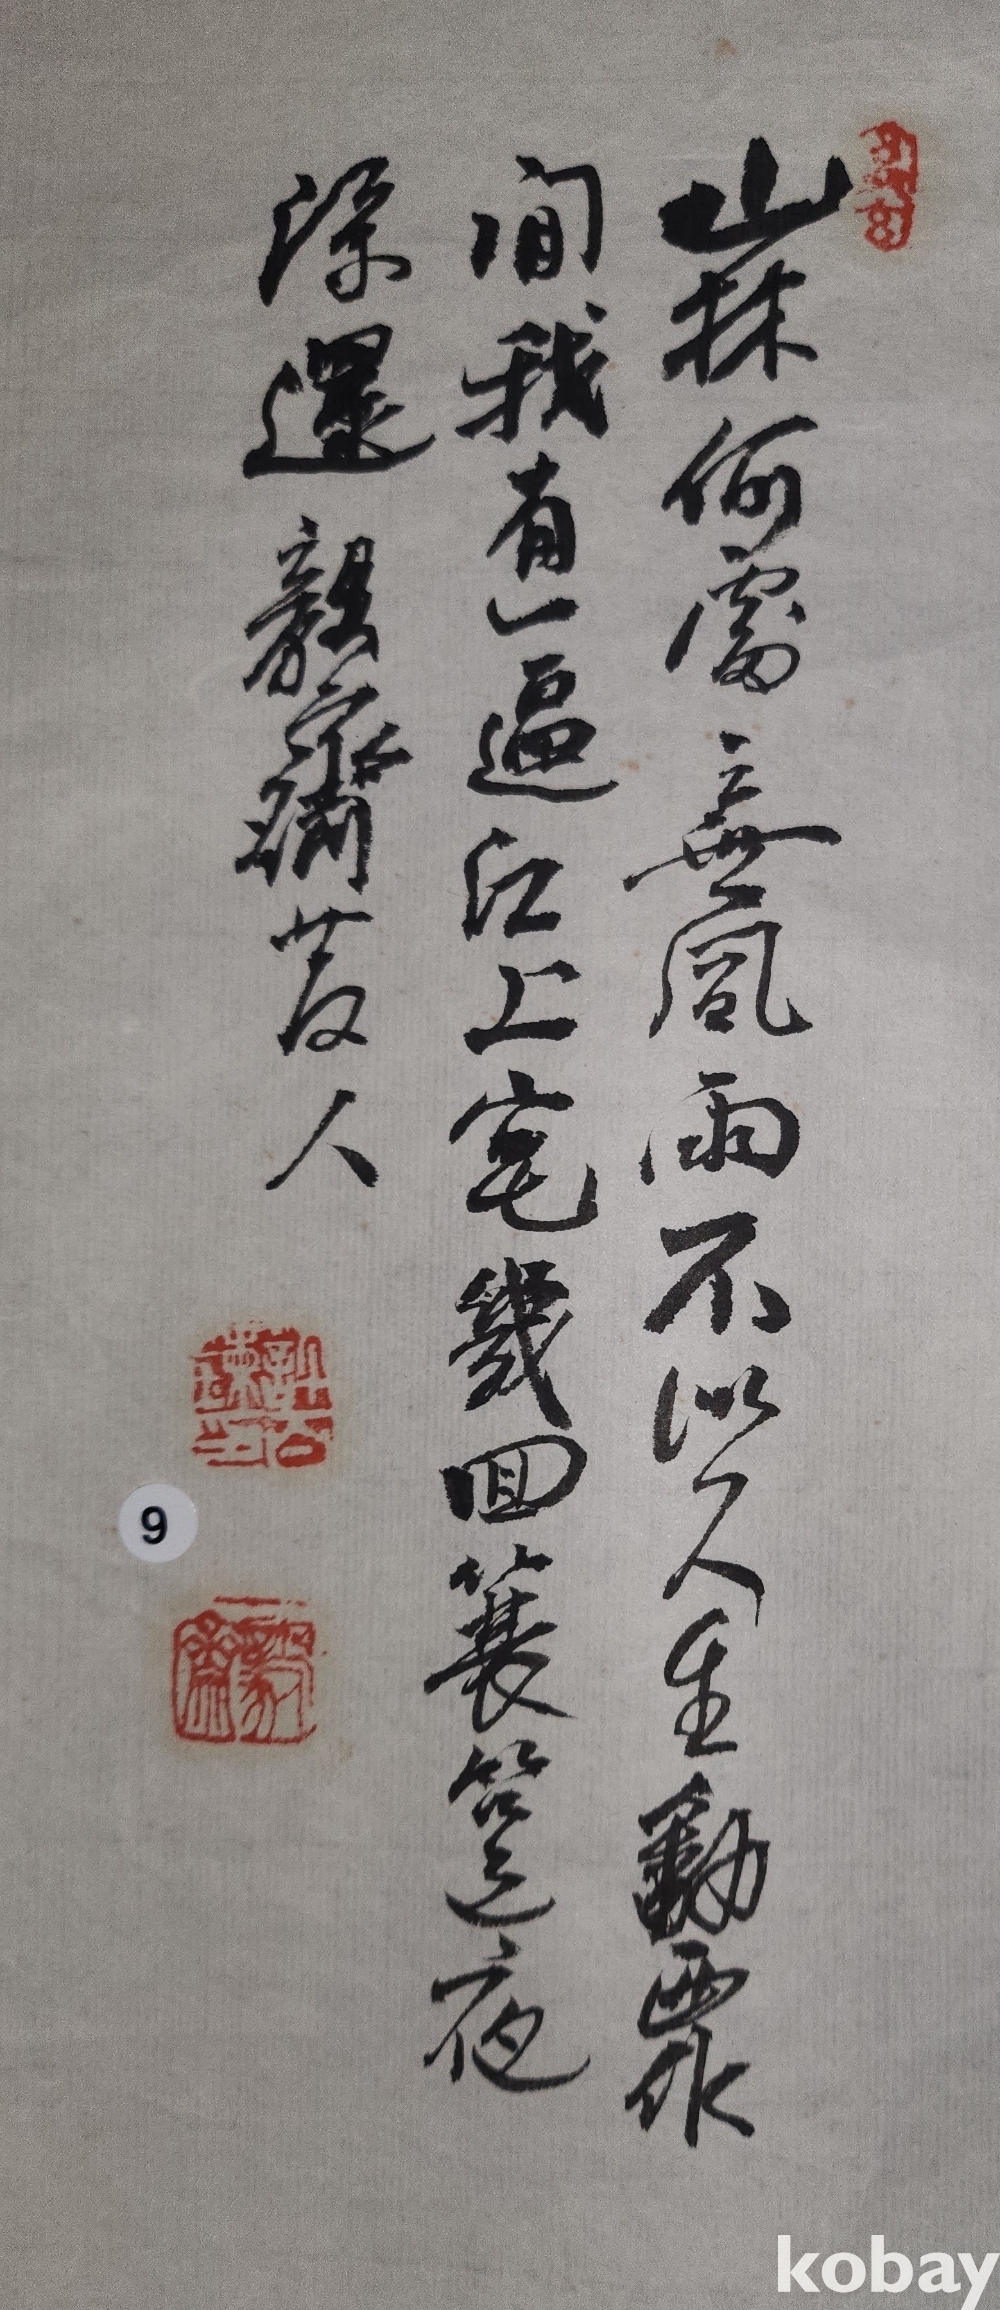 山林何處無風雨不似人生動要
間我有一區江上宅幾回簑笠夜
深還 毅齋 人
9
kobay